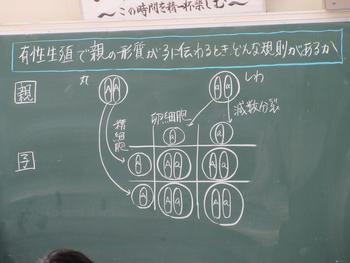 ～この時間を精一杯楽しむ～
有性生殖で親の形質が子に伝わるとき、どんな規則があるか
丸
しわ
親
A A
a a
減数分裂
卵細胞
精細胞
子